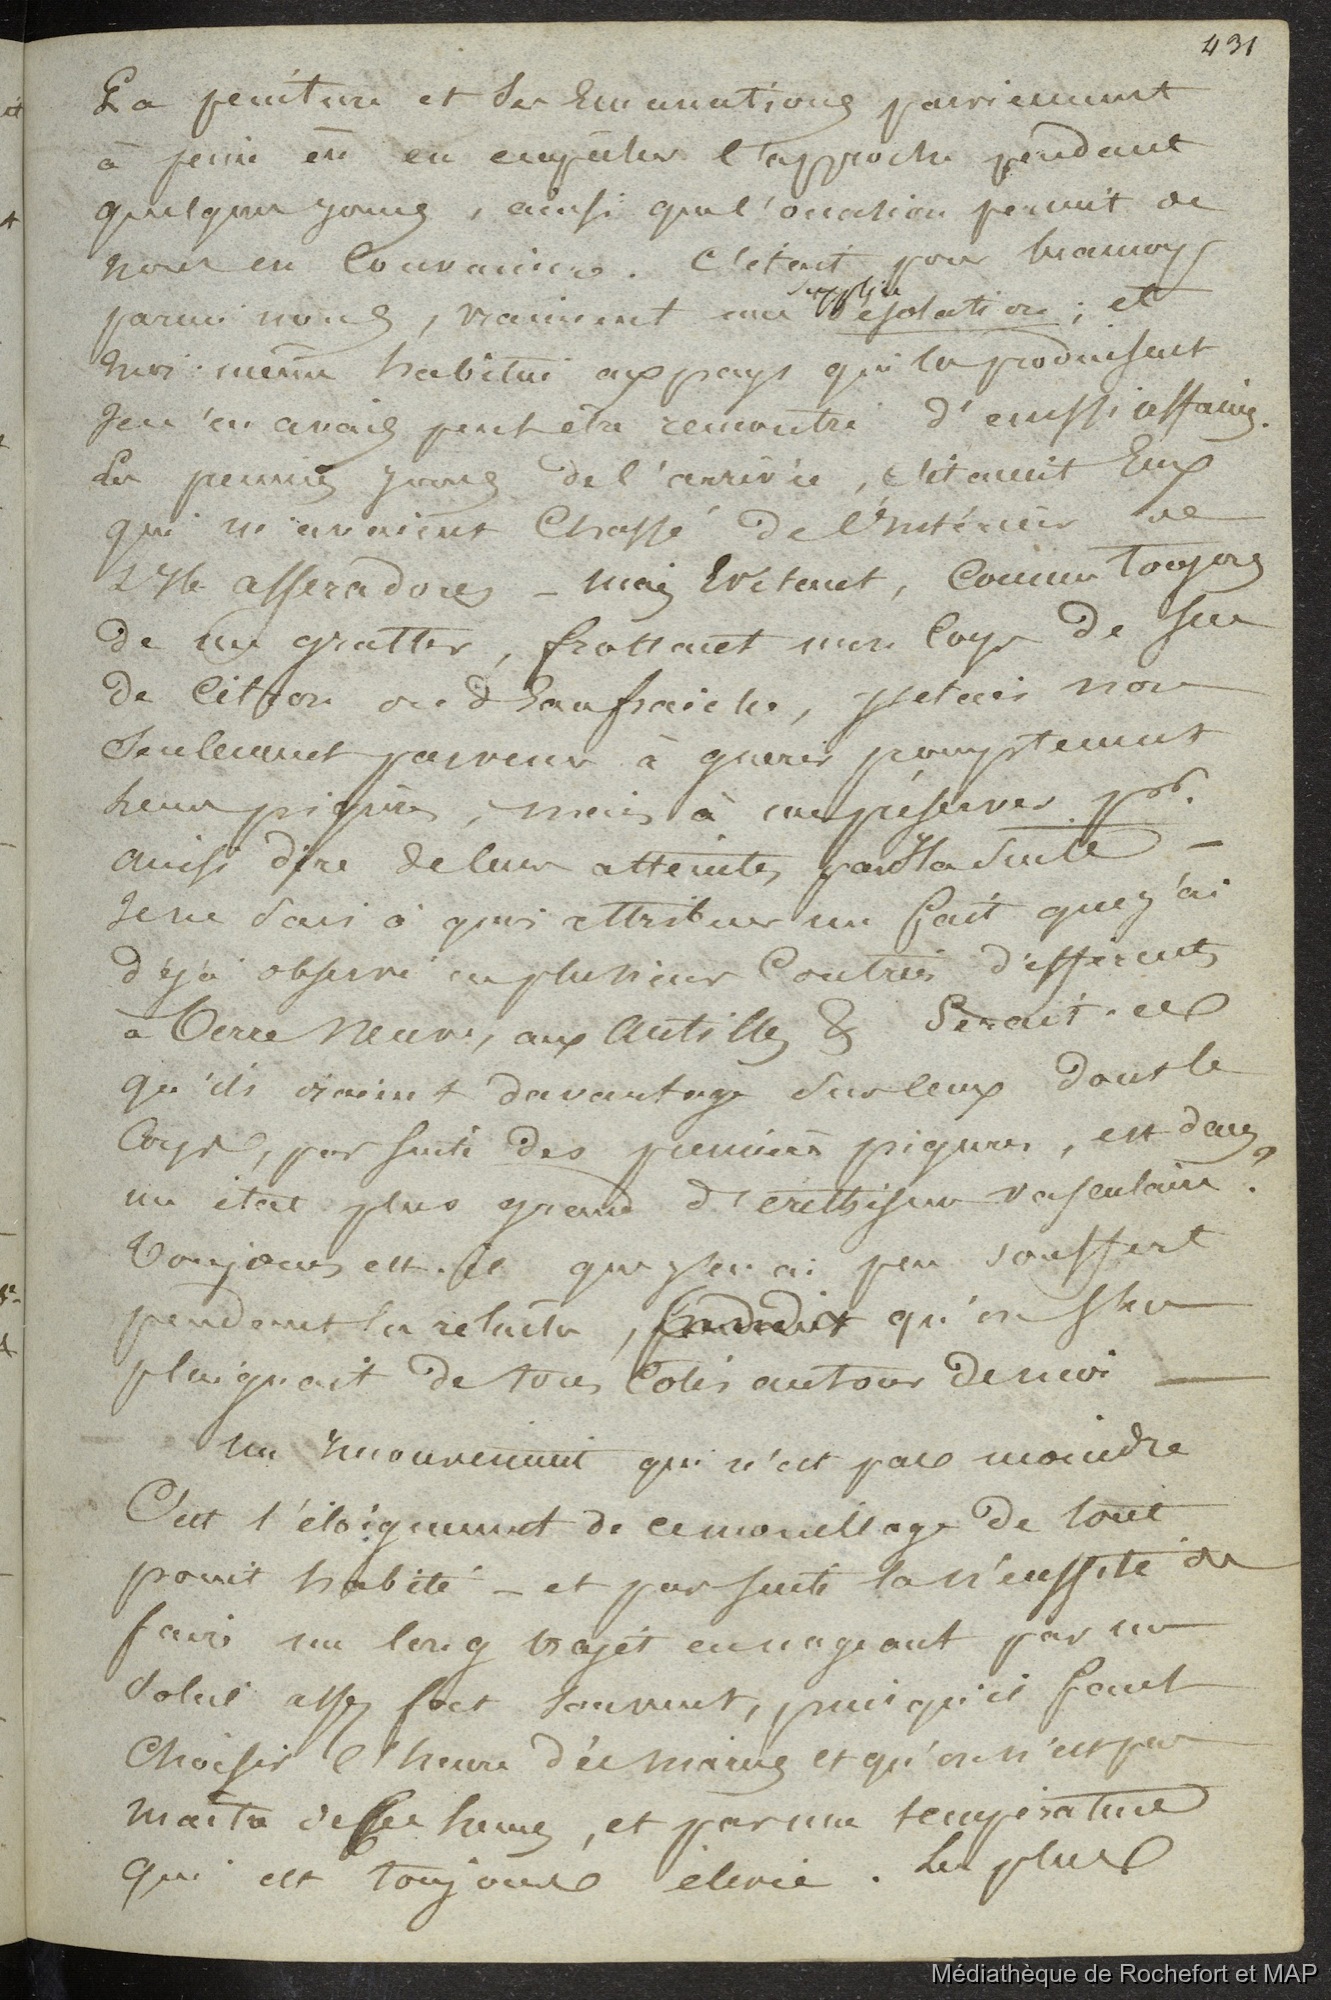 431
La peinture et ses Emanations parviennent
à peine en en empêcher l'approche pendant
quelques jours, ainsi que l'occasion permit de
nous en Convaincre. C'était pour beaucoup
supplice
parmi nous, vraiment une désolation ; et
moi-même habitué aux pays qui les produisent
Je n'en avais peut être rencontré d'aussi affamés.
Les premiers jours de l'arrivée, c'étaient Eux
qui m'avaient Chassé de l'intérieur de
asseradores – mais Evitant, Comme Toujours
de me gratter, frottant mon Corps de suc
de Citron ou d'Eau fraiche, j'etais non
Seulement parvenu à guerir promptement
leurs piqures, mais à me préserver pr.
ainsi dire de leurs atteintes par la suite –
Je ne sais à quoi attribuer un fait que j'ai
déjà observé en plusieurs Contrées différentes
à Terre Neuve, aux Antilles & Serait-ce
qu'ils vivent davantage sur ceux dont le
Corps, par suite des premières piqures, est dans
un état plus grand d'éréthisme vasculaire ?
Toujours est-il que j'en ai peu souffert
pendant la relache, qu'on s'en
plaignait de tous Cotés autour de moi —
Un inconvenient qui n'est pas moindre
C'est l'éloignement de ce mouillage de tout
point habité – et par suite la nécessité de
faire un long trajet en nageant par un
Soleil assez fort souvent, puisqu'il faut
Choisir l'heure des marées et qu'on n'est pas
maitre de ses heures, et par une température
qui est toujours élevée. Le plus
Médiathèque de Rochefort et MAP